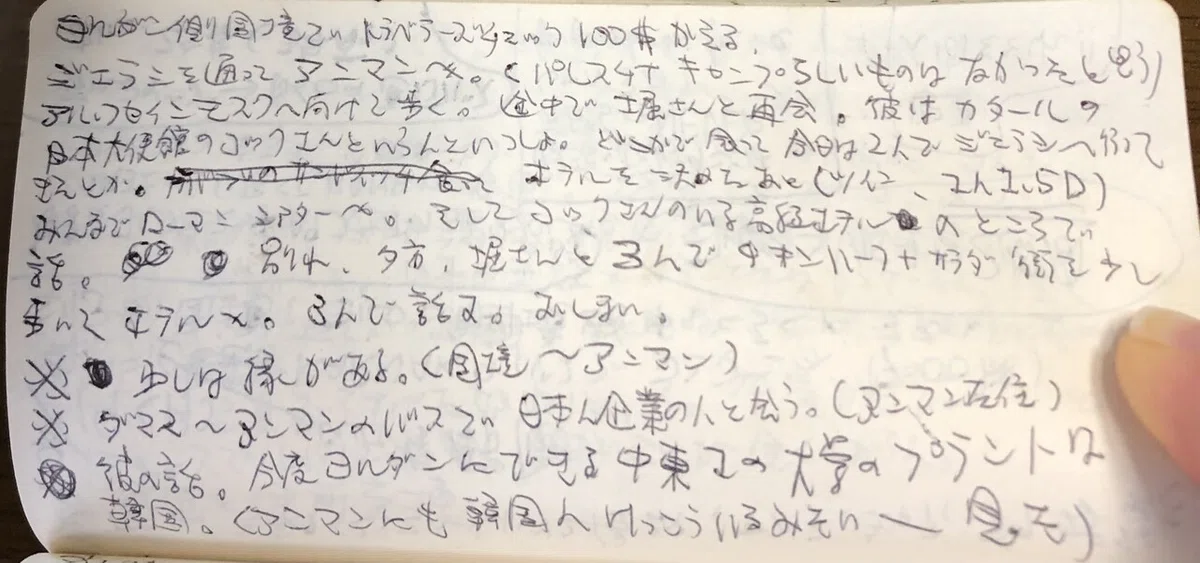 ヨルダン側国境でトラベラーズチェック100$かえる。
ジェラシを通ってアンマンへ。(パレスチナキャンプらしいものはなかったと思う)
アルフセインモスクへ向けて歩く。途中で堀さんと再会。彼はカタールの
日本大使館のコックさんといっしょ。どこかで会って今日は2人でジェラシへ行って
きたとか。ホテルを決めたあと(ツイン、1人1.5D)
みんなでローマンシアターへ。そしてコックさんのいる高級ホテルのところで
話。別れ、夕方、堀さんと3人でチキンハーフ+サラダ 街を少し
歩いてホテルへ。3人で話す。おしまい。
※ 少しは緑がある。(国境〜アンマン)
※ ダマス〜アンマンのバスで日本人企業の人と会う。(アンマン在住)
彼の話。今度ヨルダンにできる中東1の大学のプラントは
韓国。(アンマンにも韓国人けっこういるみたい〜見た)